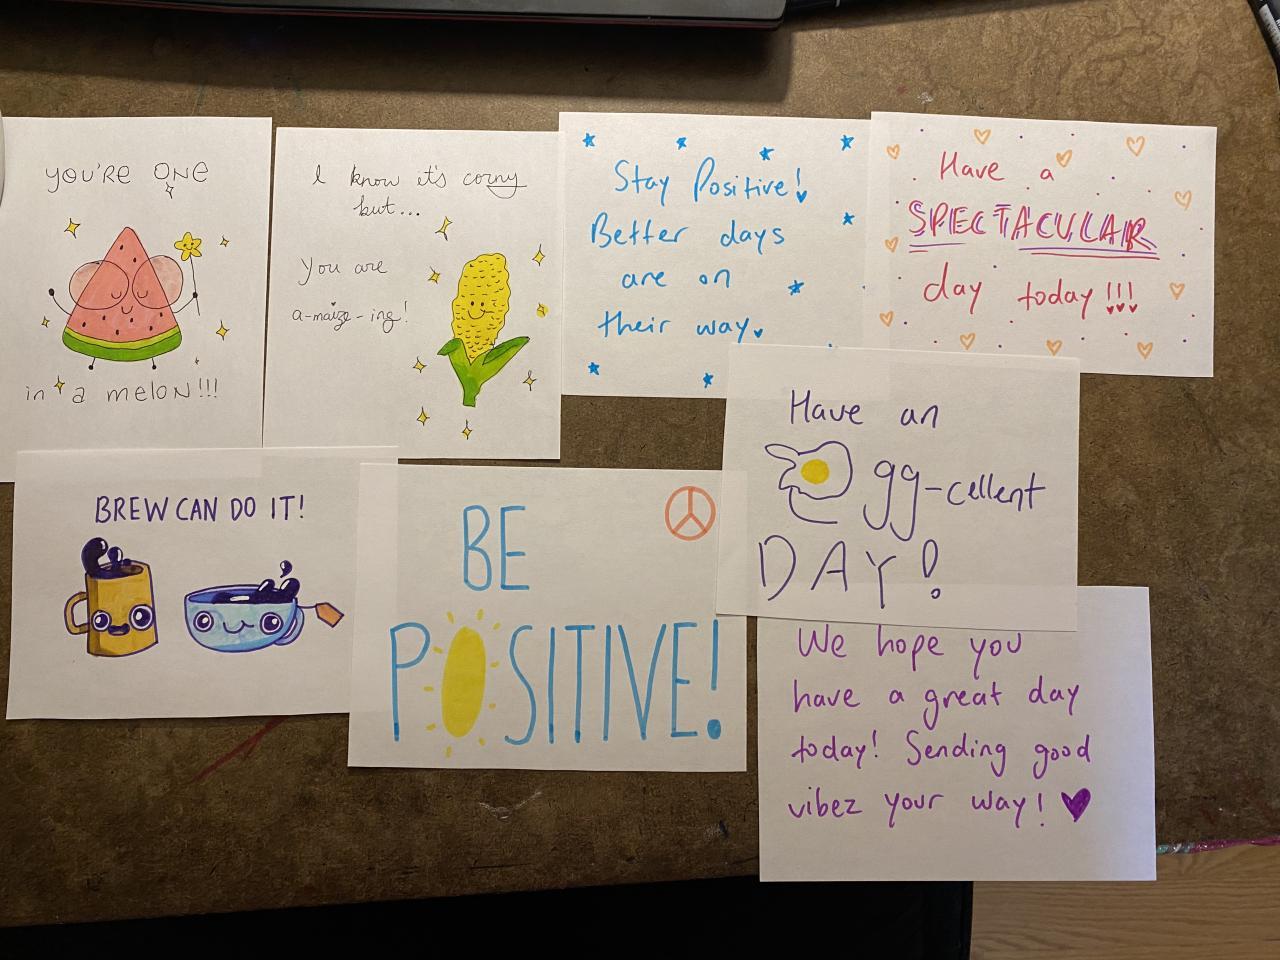 YOU'RE ONE
in a melon!!!
I know it's corny
but...
You are
a-maize-ing!
Stay Positive!
Better days
are on
their way.
Have a
SPECTACULAR
day today!!!
BREW CAN DO IT!
BE
POSITIVE!
Have an
Egg-cellent
DAY!
We hope you
have a great day
today! Sending good
vibez your way!